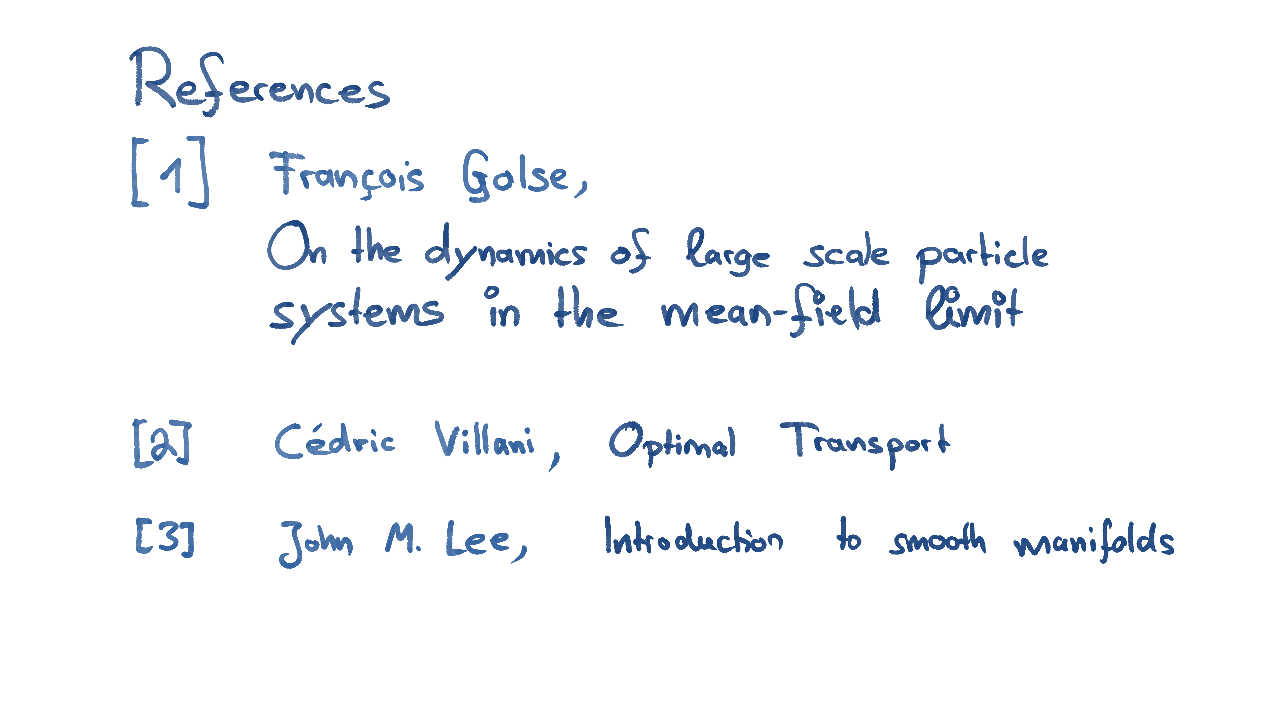 References
[1] François Golse,
On the dynamics of large scale particle
systems in the mean-field limit
[2] Cédric Villani, Optimal Transport
[3] John M. Lee, Introduction to smooth manifolds